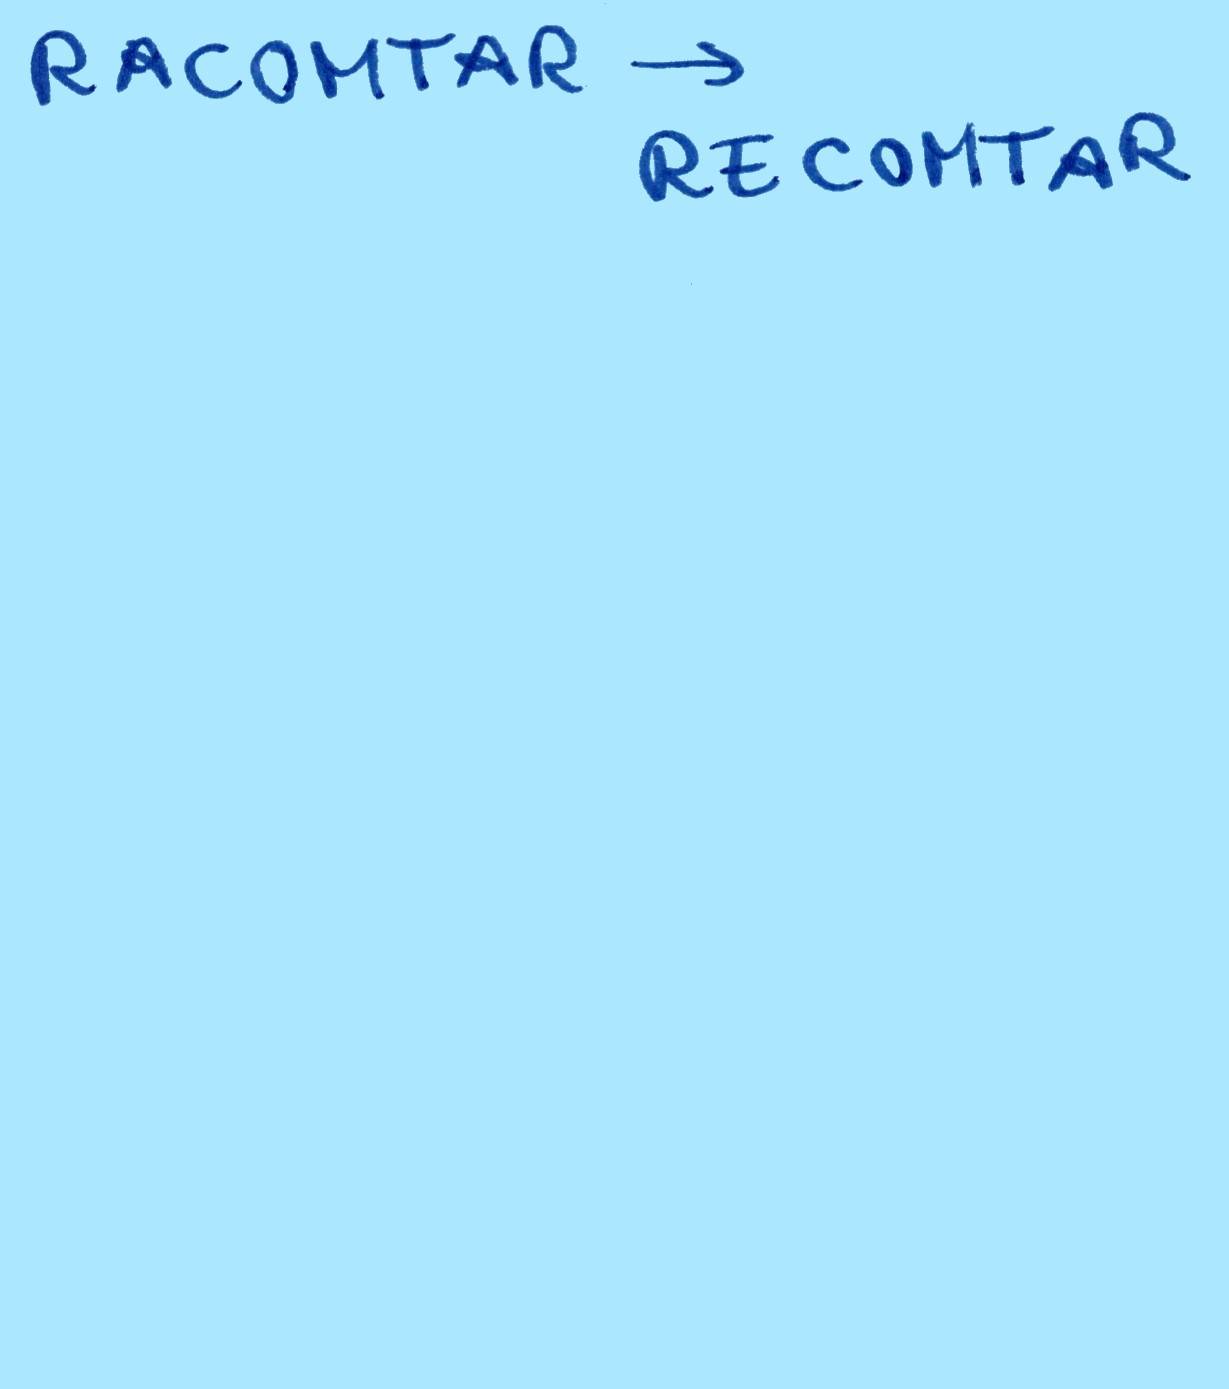 RACOMTAR →
RECOMTAR